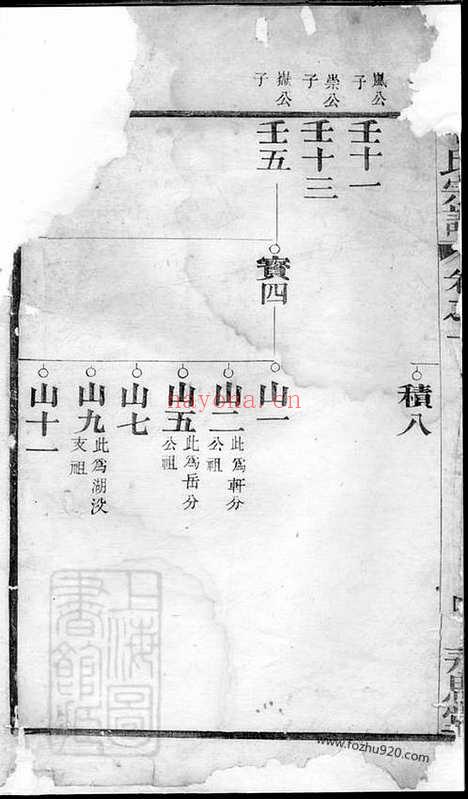 嵐公子
壬十一
崇公子
壬十三
嶽公子
壬五
實四
積八
山一
山二
此爲軒分公祖
山五
此爲岳分公祖
山七
山九
此爲湖沒支祖
山十一
氏宗譜
卷之
上海圖書館藏
nayona.cn
www.fozhu920.com